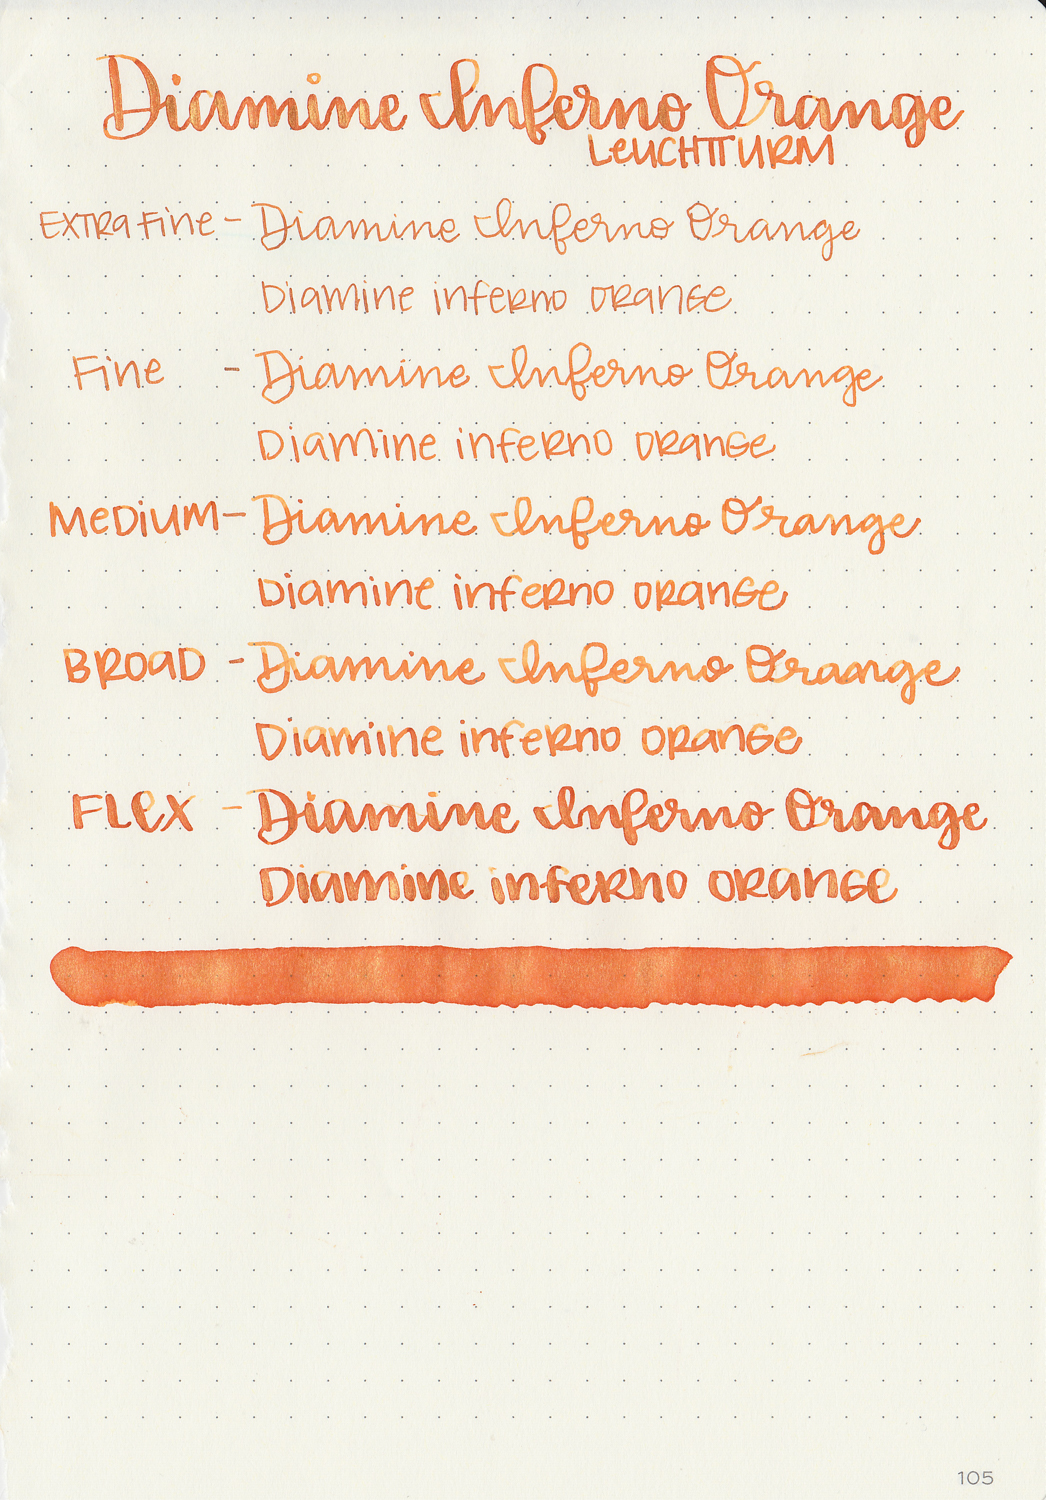 Diamine Inferno Orange
LEUCHTTURM
EXTRA FINE - Diamine Inferno Orange
Diamine inferno orange
Fine - Diamine Inferno Orange
Diamine inferno orange
MEDIUM - Diamine Inferno Orange
Diamine inferno orange
BROAD - Diamine Inferno Oraange
Diamine inferno orange
FLEX - Diamine Inferno Orange
Diamine inferno orange
105